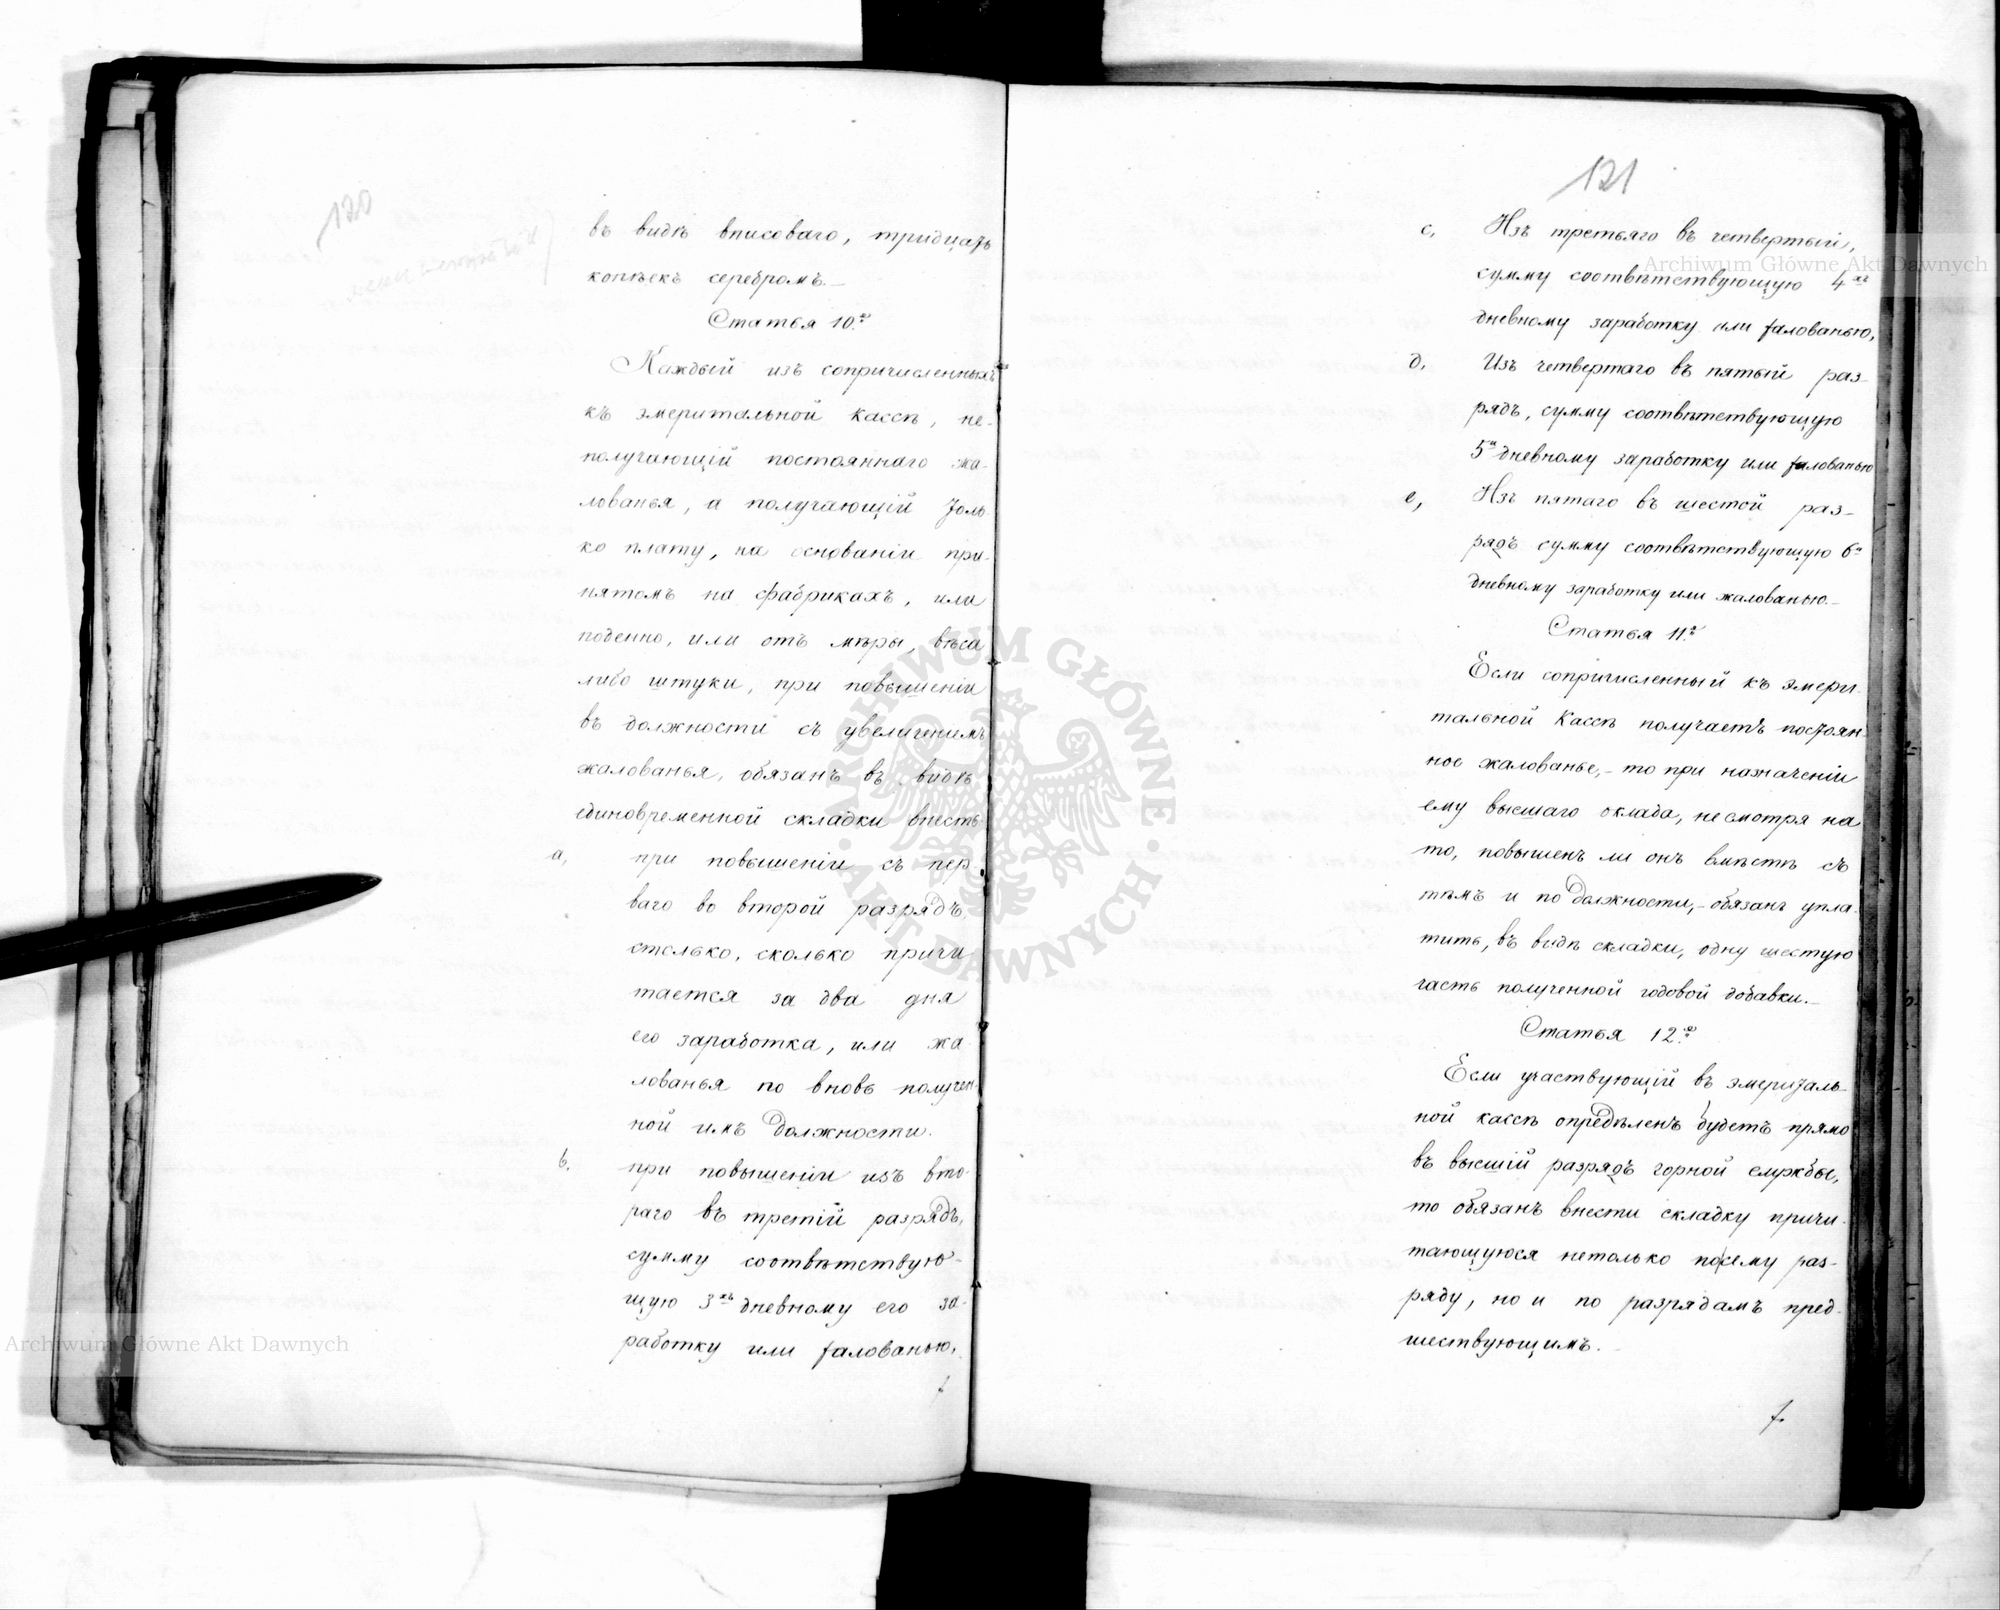 120
въ видѣ вписоваго, тридцать
копѣекъ серебромъ.—
Статья 10.ª
Каждый изъ сопричисленныхъ
къ эмеритальной кассѣ, не-
получающій постояннаго жа-
лованья, а получающій толь
ко плату, на основаніи при-
нятомъ на фабрикахъ, или
поденно, или отъ мѣры, вѣса
либо штуки, при повышеніи
въ должности съ увеличеніемъ
жалованья, обязанъ въ видѣ
единовременной складки внесть
a, при повышеніи съ пер-
ваго во второй разрядъ,
столько, сколько причи
тается за два дня
его заработка, или жа
лованья по вновь получен
ной имъ должности.
b. при повышеніи изъ вто-
раго въ третій разрядъ,
сумму соотвѣтствую-
щую 3хъ дневному его за-
работку или жалованью,
121
c, Изъ третьяго въ четвертый,
сумму соотвѣтствующую 4хъ
дневному заработку или жалованью,
d, Изъ четвертаго въ пятый раз-
рядъ, сумму соотвѣтствующую
5и дневному заработку или жалованью
e, Изъ пятаго въ шестой раз-
рядъ сумму соотвѣтствующую 6и
дневному заработку или жалованью.—
Статья 11.ª
Если сопричисленный къ эмери-
тальной Кассѣ получаетъ постоян
ное жалованье,- то при назначеніи
ему высшаго оклада, несмотря на
то, повышенъ ли онъ вмѣстѣ съ
тѣмъ и по должности,- обязанъ упла-
тить, въ видѣ складки, одну шестую
часть полученной годовой добавки.—
Статья 12.ª
Если участвующій въ эмериталь-
ной кассѣ опредѣленъ будетъ прямо
въ высшій разрядъ горной службы,
то обязанъ внести складку причи-
тающуюся нетолько посему раз-
ряду, но и по разрядамъ пред-
шествующимъ.
Archiwum Główne Akt Dawnych
Archiwum Główne Akt Dawnych
ARCHIWUM GŁÓWNE · AKT DAWNYCH ·